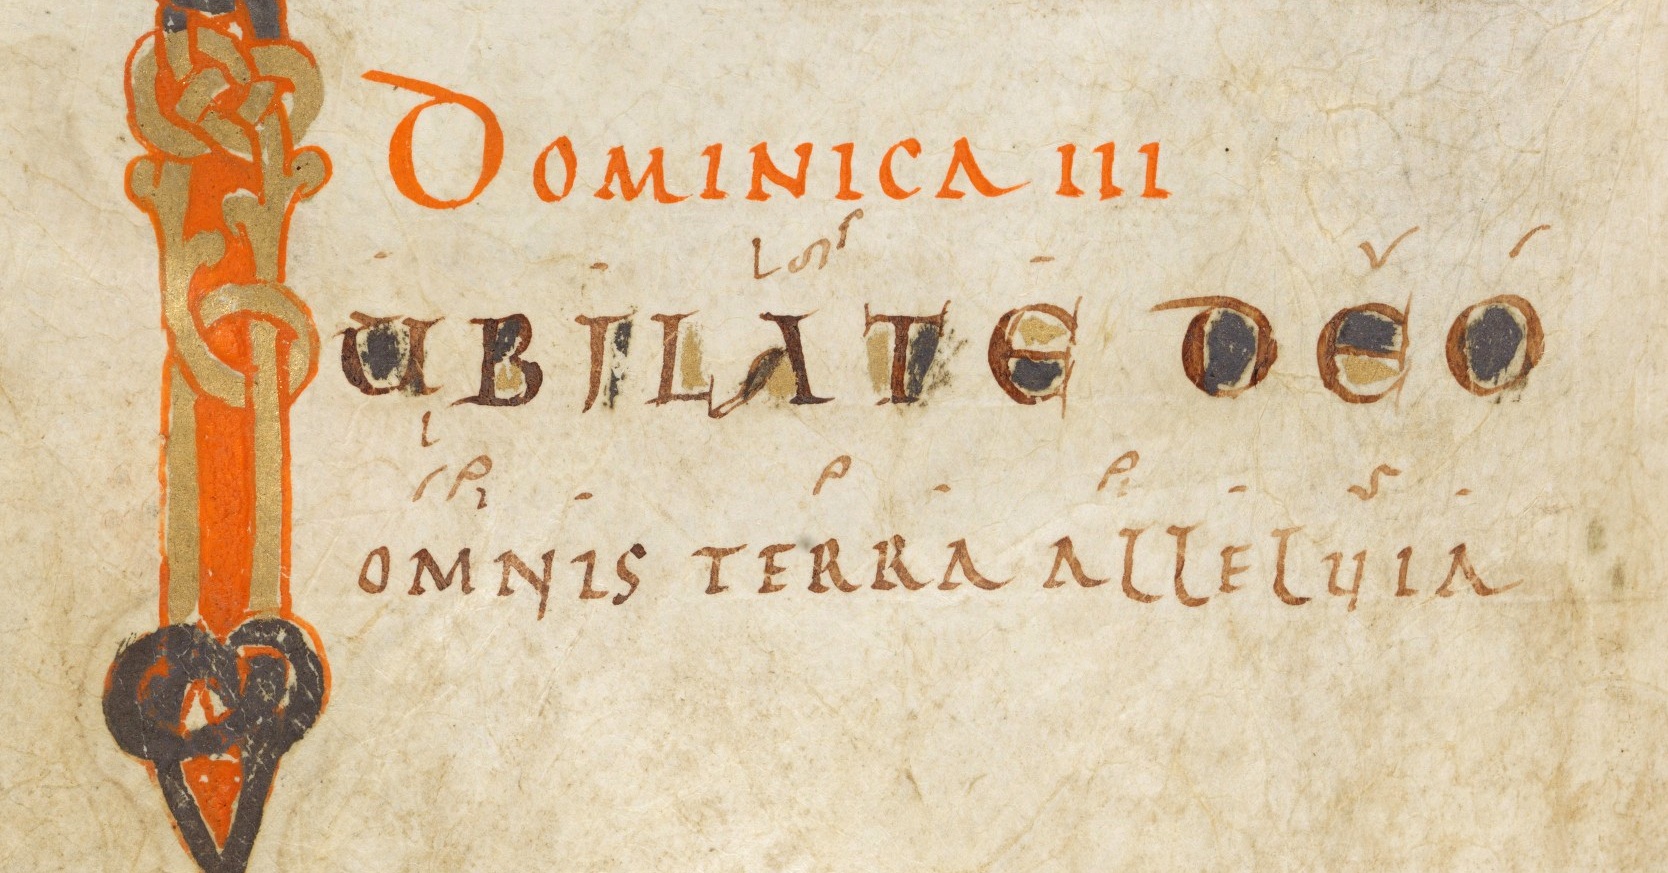 Dominica III
IUBILATE DEO
OMNIS TERRA ALLELUIA